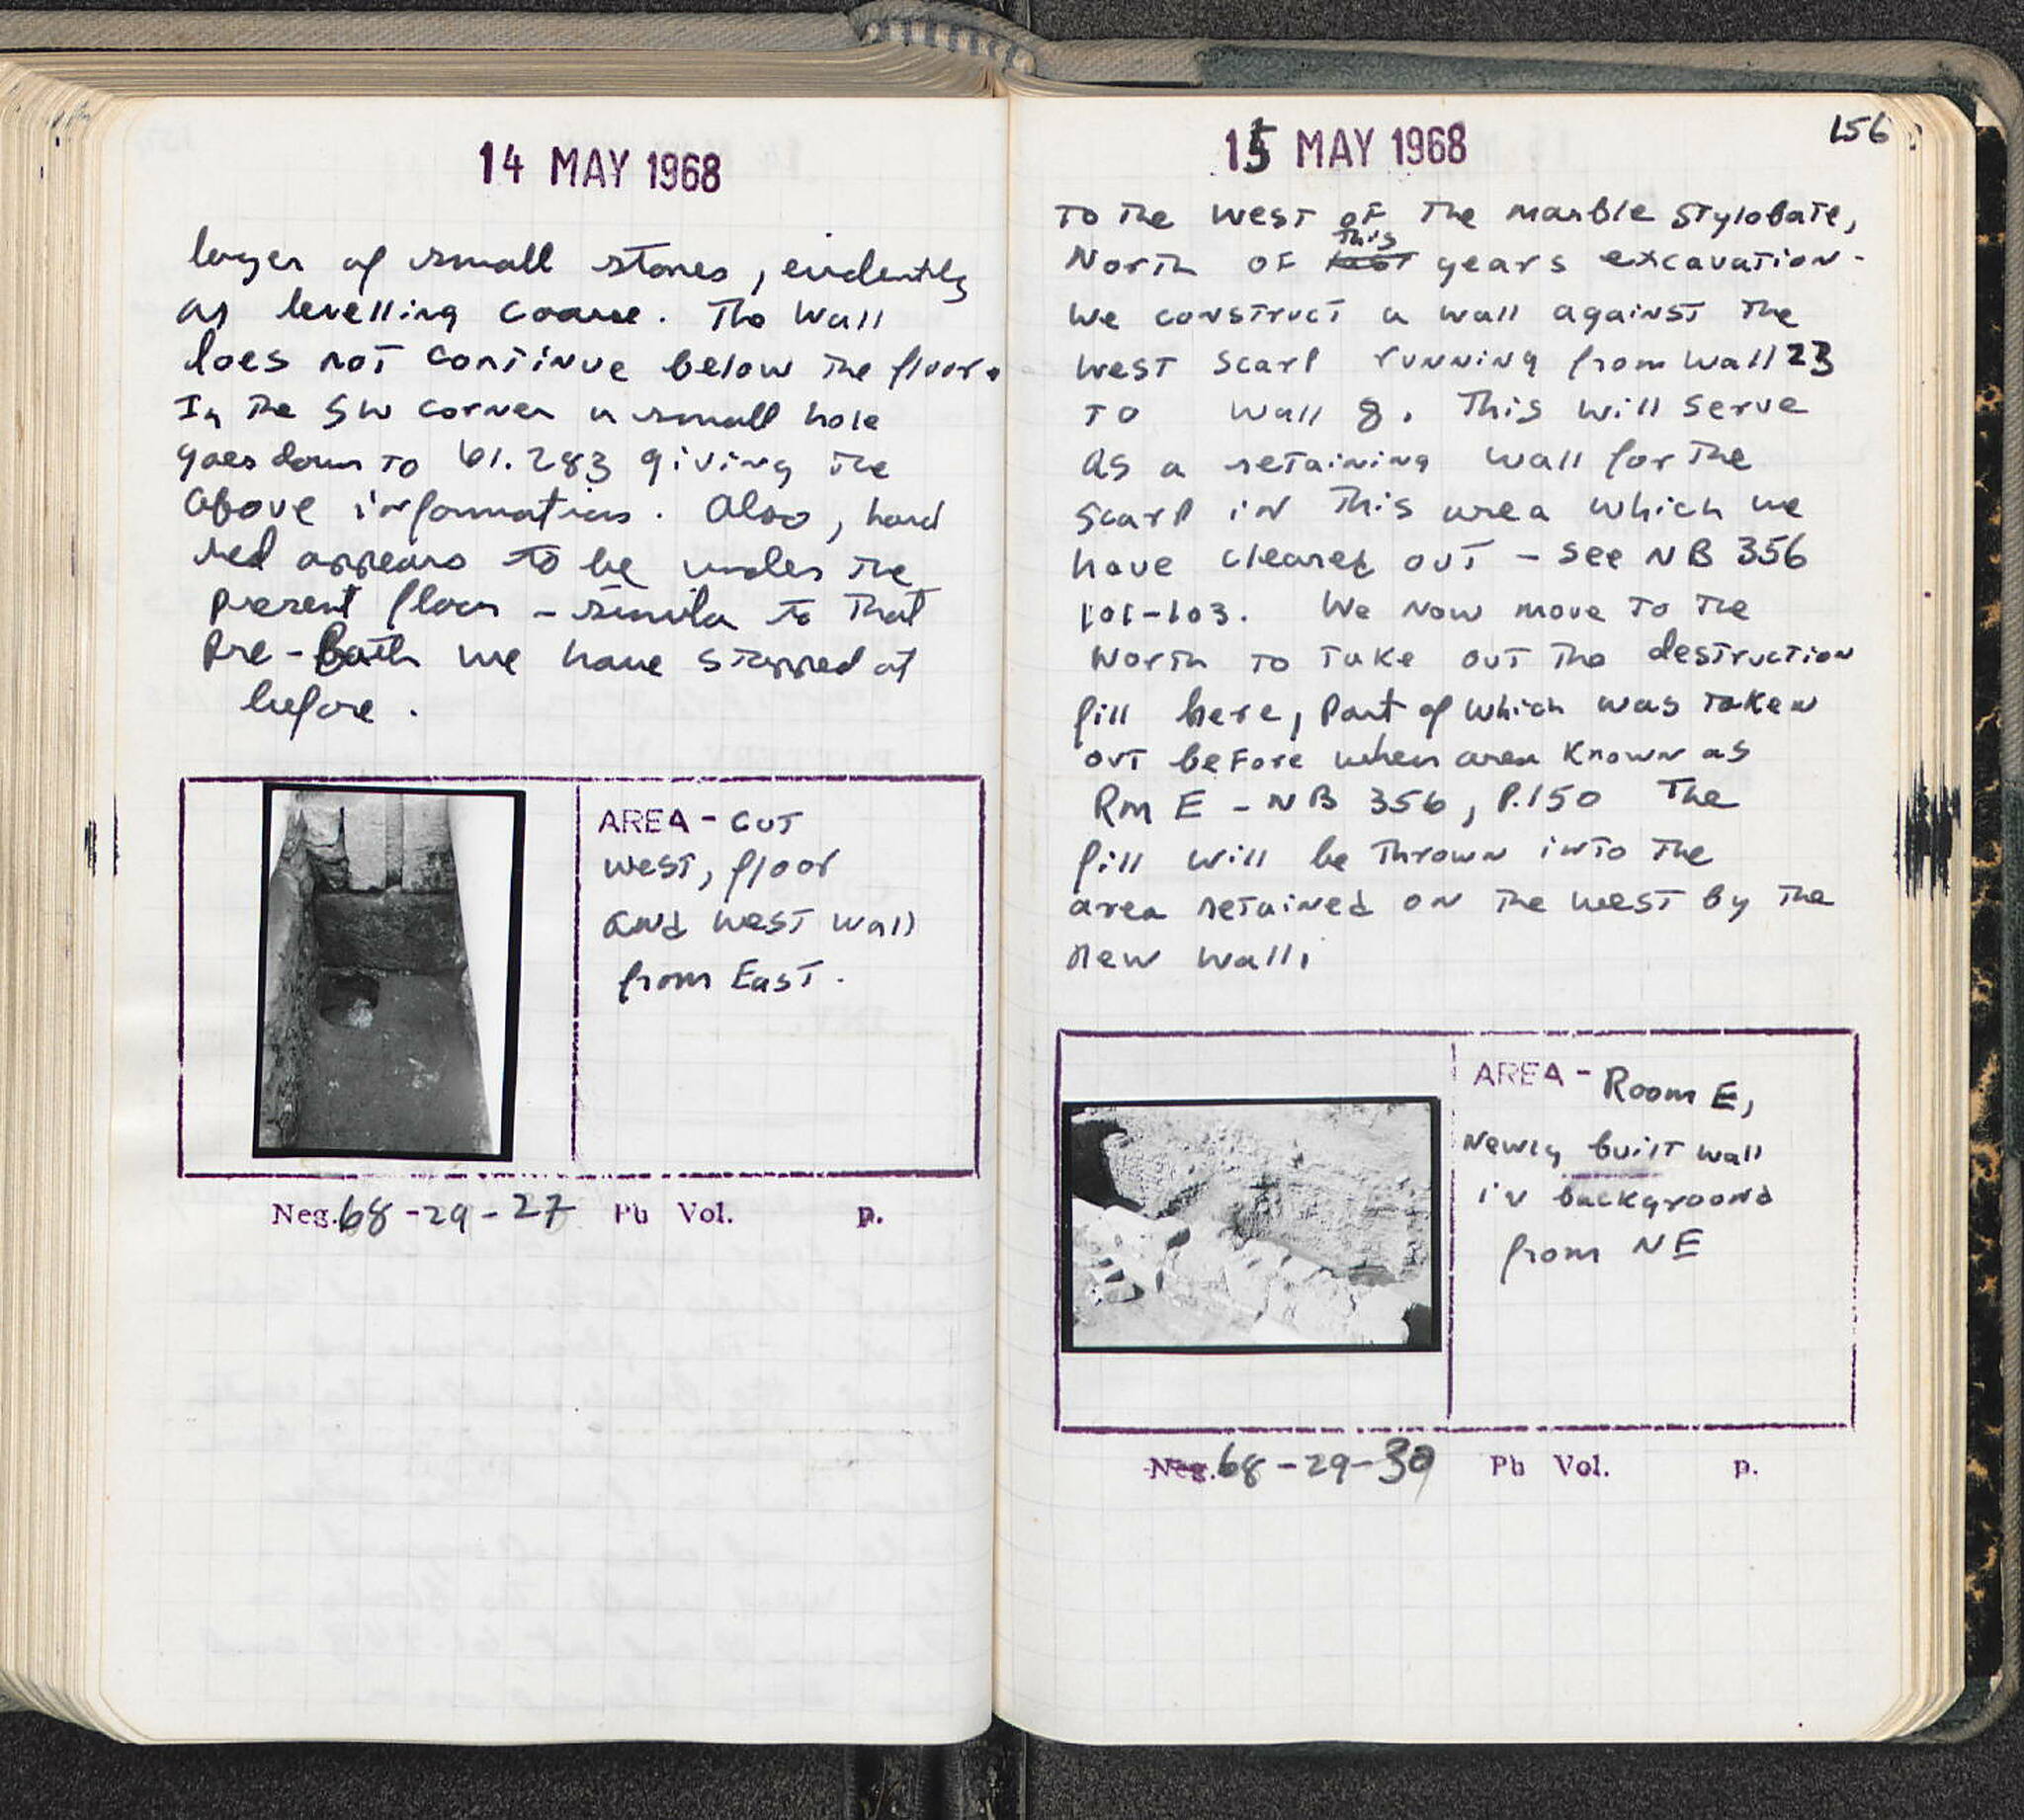 14 MAY 1968
layer of small stones, evidently
as levelling course. The Wall
does not continue below the floor.
In the SW corner a small hole
goes down to 61.283 giving the
above information. Also, hard
red appears to be under the
present floor - similar to that
pre-Bath we have stopped at
before.
AREA - CUT
west, floor
and west wall
from East.
Neg. 68-29-27 Pb Vol. p.
156
15 MAY 1968
To the west of the marble stylobate,
this
North of last years excavation -
We construct a wall against the
west scarp running from Wall 23
to wall 8. This will serve
as a retaining wall for the
scarp in this area which we
have cleared out - see NB 356
101-103. We now move to the
North to take out the destruction
fill here, part of which was taken
out before when area known as
Rm E - NB 356, P.150 The
fill will be thrown into the
area retained on the west by the
new wall.
AREA - Room E,
Newly built wall
in background
from NE
Neg. 68-29-30 Pb Vol. p.